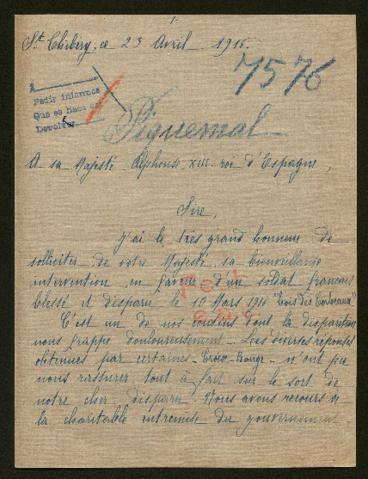 St Thibéry, ce 23 Avril 1916.
7576
A
Pedir informes
Que se haga
Devolver
Piquemal
A sa Majesté Alphonse XIII roi d'Espagne,
Sire,
J'ai le très grand honneur de
solliciter de votre Majesté, sa bienveillante
intervention en faveur d'un soldat français
blessé et disparu le 10 Mars 1916 "Bois des Corbeaux"
C'est un de nos cousins dont la disparition
nous frappe douloureusement. Les diverses réponses
obtenues par certaines Croix-Rouge n'ont pu
nous rassurer tout à fait sur le sort de
notre cher disparu. Nous avons recours à
la charitable entremise du gouvernement